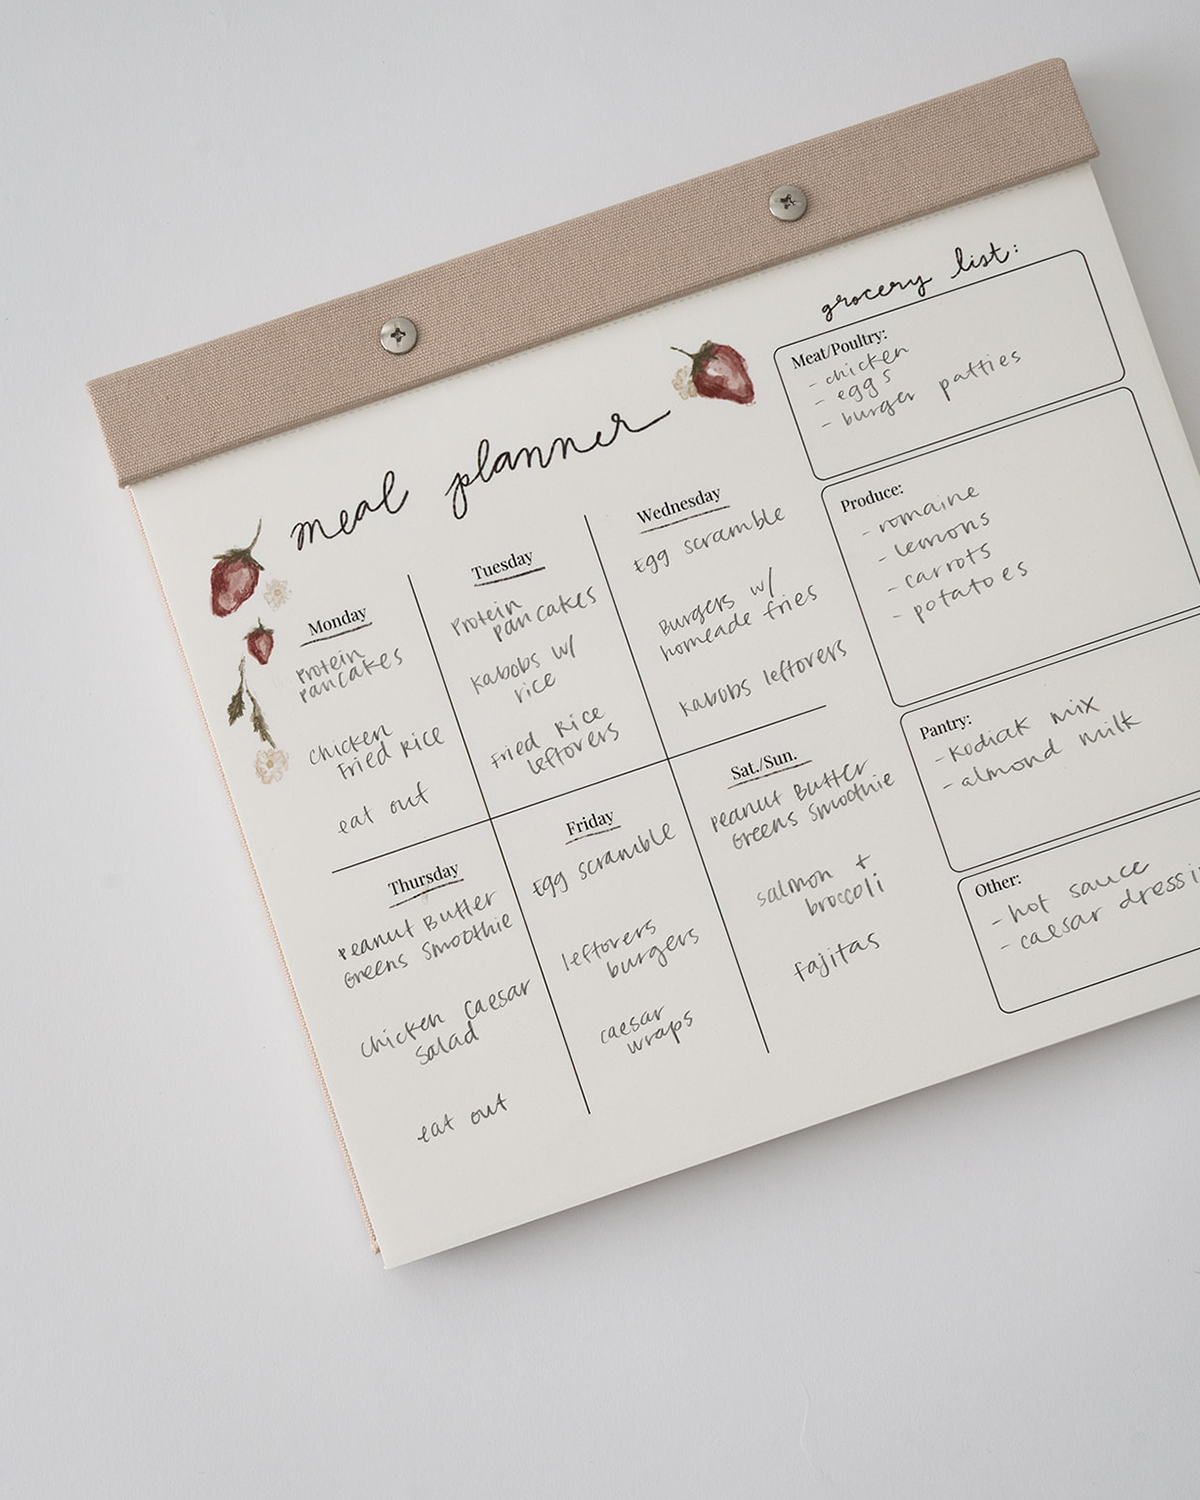 meal planner
Monday
Protein
Pancakes
chicken
Fried Rice
eat out
Tuesday
Protein
pancakes
Kabobs w/
rice
Fried Rice
leftovers
Wednesday
Egg scramble
Burgers w/
homeade fries
Kabobs leftovers
Thursday
Peanut Butter
Greens Smoothie
Chicken Caesar
Salad
eat out
Friday
Egg scramble
leftovers
burgers
caesar
wraps
Sat./Sun.
Peanut Butter
Greens Smoothie
salmon +
broccoli
Fajitas
grocery list:
Meat/Poultry:
- chicken
- eggs
- burger patties
Produce:
- romaine
- lemons
- carrots
- potatoes
Pantry:
- Kodiak mix
- almond milk
Other:
- hot sauce
- caesar dressi